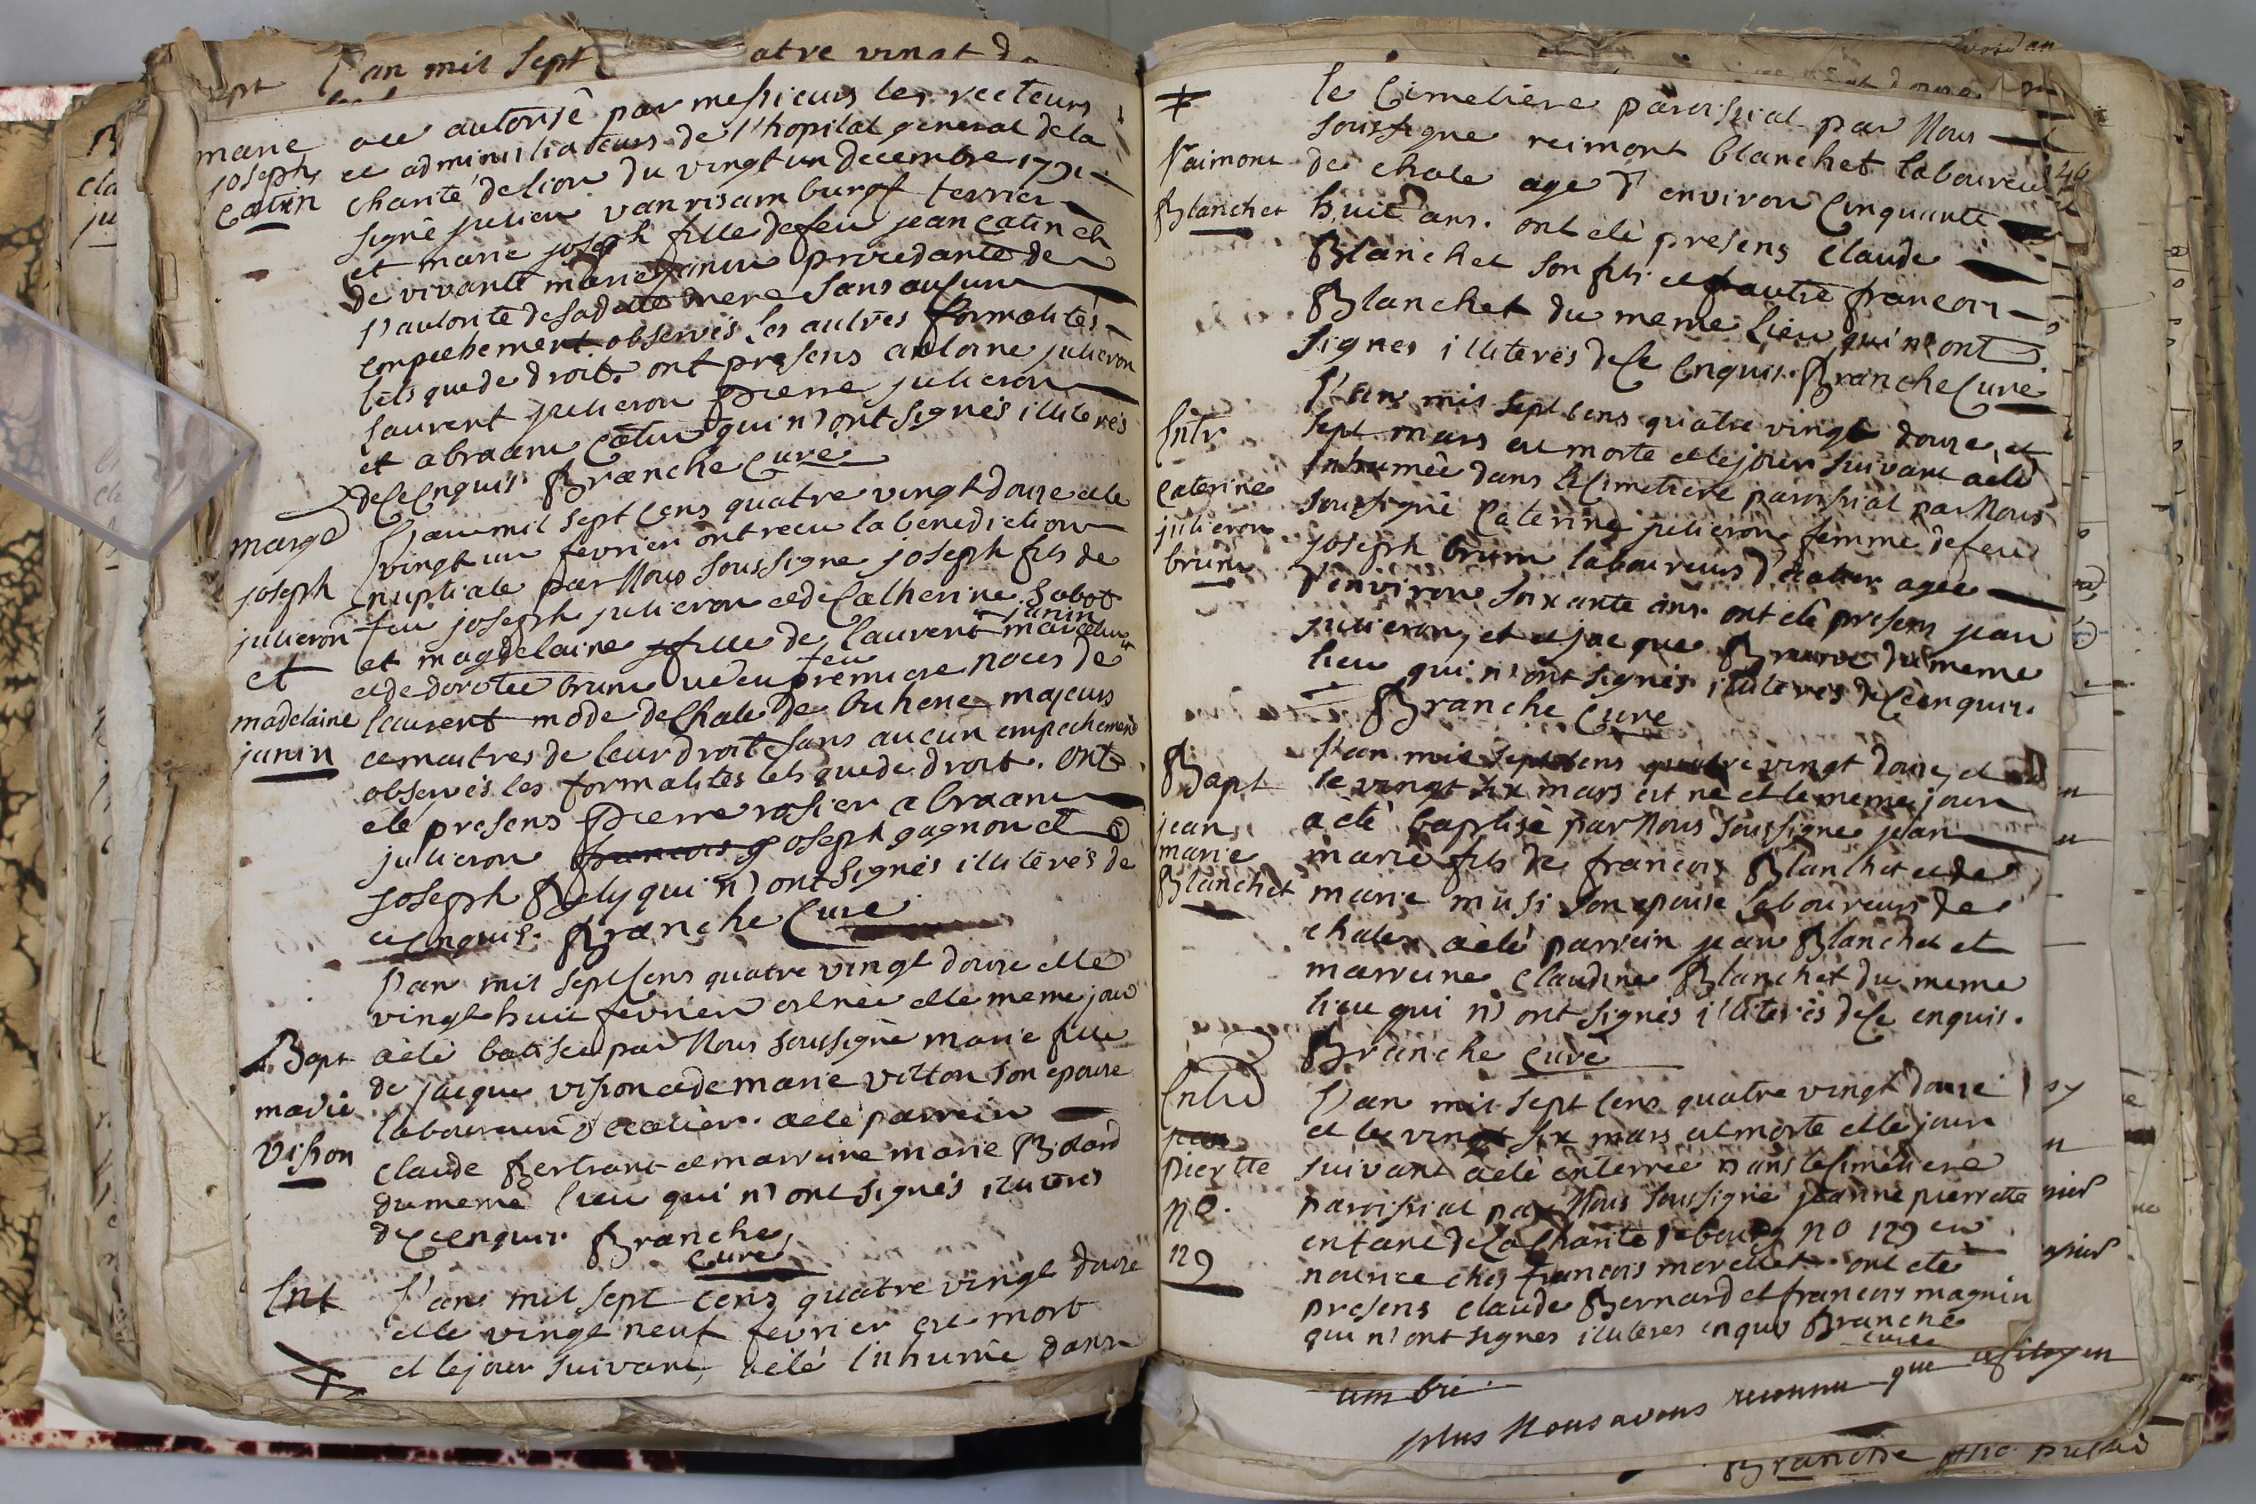 sept l'an mil sept atre vingt d
marie ete autorisé par messieurs les recteurs
joseph et administrateurs de l'hopital general de la
catin charité de lion du vingt un decembre 1791
signé julien vanrisamburgh terrier
et marie joseph fille de feu jean catin et
de vivante marie procedante de
l'autorité de sadite mere sans aucun
empechement observés les autres formalités
tels que de droit. ont presens antoine julieron
laurent julieron pierre julieron
et abraam catin qui n'ont signés illiterés
de ce enquis. Branche curé
marge l'an mil sept cens quatre vingt douze et le
vingt un fevrier ont recu la benediction
joseph nuptiale par Nous soussigne joseph fils de
julieron feu joseph julieron et de Catherine Sabot
et et magdelaine fille de laurent junin
et de dorotée brun veuve en premiere nous de feu
madelaine laurent mode de Chale de buhene majeurs
junin et maitres de leur droit sans aucun empechement
observés les formalités tels que de droit. ont
eté presens pierre rosier abraam
julieron francois joseph gagnon et
joseph Bely qui n'ont signés illiterés de
ce enquis. Branche Curé
l'an mil sept cens quatre vingt douze et le
vingt huit fevrier est née et le meme jour
Bapt a eté batisée par Nous soussigné marie fille
marie de jacque vision et de marie vitton son epouse
vision laboureurs d' a eté parrein
claude Bertrant et marreine marie Bidard
du meme lieu qui n'ont signés illiterés
de ce enquis. Branche
curé
Ent l'an mil sept cens quatre vingt douze
et le vingt neuf fevrier est mort
et le jour suivant a eté inhumé dans
le Cimetiere paroissial par Nous
soussigne reimont blanchet laboureur
raimont de chale age d'environ cinquante
Blanchet huit ans. ont eté presens claude
Blanchet son fils et l'autre francois
Blanchet du meme lieu qui n'ont
signés illiterés de ce enquis. Branche Curé
l'an mil sept cens quatre vingt douze, et
Entr sept mars est morte et le jour suivant a eté
inhumée dans le Cimetiere paroissial par Nous
caterine soussigné Caterine julieron femme de feu
julieron joseph brun laboureurs d' agée
brun d'environ soixante ans. ont eté presens jean
julieron, et jacque Brun du meme
lieu qui n'ont signés illiterés de ce enquis.
Branche Curé
l'an mil sept cens quatre vingt douze, et
Bapt le vingt six mars est né et le meme jour
jean a eté baptisé par Nous soussigne jean
marie marie fils de francois Blanchet et de
Blanchet marie musi son epouse laboureurs de
chale. a eté parrein jean Blanchet et
marreine claudine Blanchet du meme
lieu qui n'ont signés illiterés de ce enquis.
Branche curé
Entr l'an mil sept cens quatre vingt douze
jean et le vingt six mars est morte et le jour
pierette suivant a eté enterrée dans le Cimetiere
no. paroissial par Nous soussigné jeanne pierrette
129 enfant de la Charité de bourg no 129 en
nourice chés francois morellet. ont eté
presens claude Bernard et francois magnin
qui n'ont signés illiteres enquis Branche
curé
plus Nous avons reconnu que
Branche